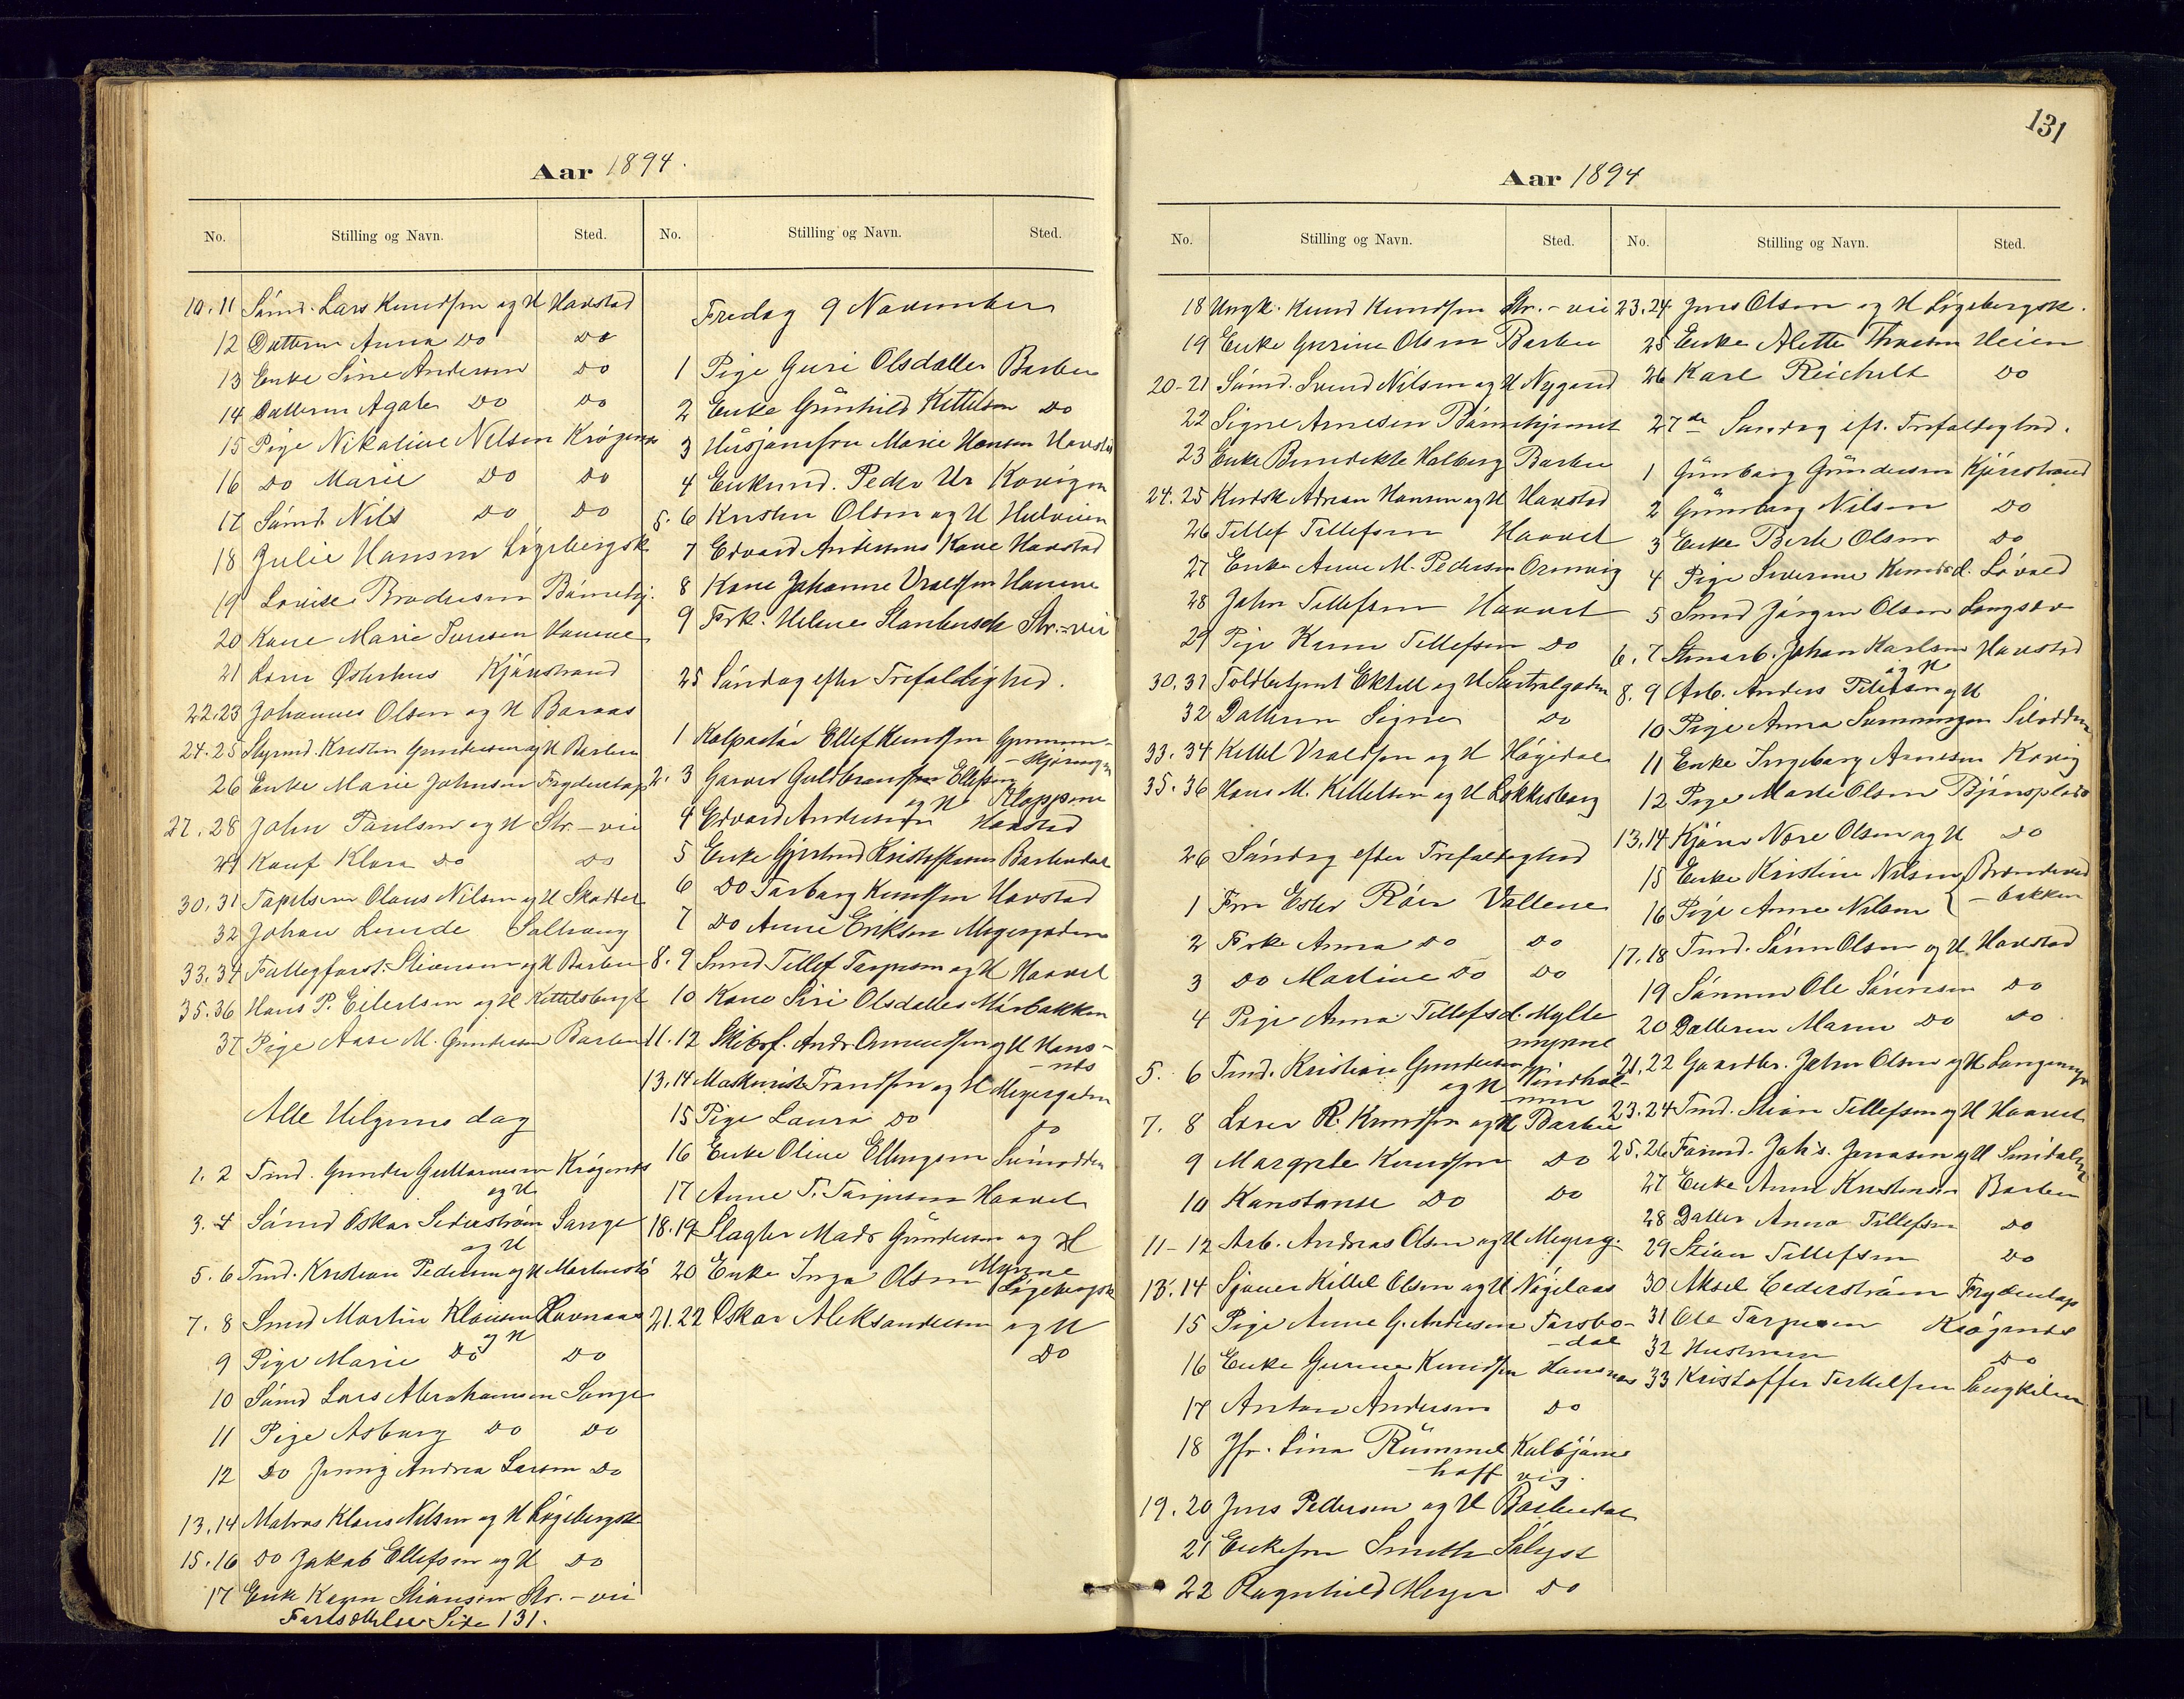 Aar 1894.
No. Stilling og Navn. Sted.
10.11 Sømd. Lars Knudsen og H Havstad
12 Datteren Anna Do Do
13 Enke Sine Andersen Do
14 Datteren Agate Do Do
15 Pige Nikoline Nilsen Krøgenes
16 Do Marie Do Do
17 Sømd. Nils Do Do
18 Julie Hansen Løgebergsk
19 Lovise Brodersen Børnehj.
20 Kone Marie Iversen Havene
21 Lovise Østerhus Kjørrstrand
22.23 Johannes Olsen og H Baraas
24.25 Styrmd. Kristen Gundersen og H Barbu
26 Enke Marie Johnsen Frydentop
27.28 John Paulsen og H Str.-vei
29 Konf Klara Do Do
30.31 Tapetserer Olaus Nilsen og H Skottet
32 Johan Lunde Solhaug
33.34 Fattigforst. Stiansen og H Barbu
35.36 Hans P. Eilertsen og H Kittelsbugt
37 Pige Aase M. Gundersen Barbu
Alle Helgens dag
1.2 Tmd. Gunder Guttormsen Krøgenes
og H
3.4 Sømd Oskar Sederstrøm Songe
og H
5.6 Tmd. Kristian Pedersen og H
7.8 Smed Martin Klausen Havnaas
og H
9 Pige Marie Do Do
10 Sømd Lars Abrahamsen Songe
11 Pige Asborg Do Do
12 Do Jenny Andrea Larsen Do
13.14 Matros Klaus Nilsen og H Løgebergsk
15.16 Do Jakob Ellefsen og H Do
17 Enke Karen Stiansen Str.-vei
Fortsættelse Side 131.
No. Stilling og Navn. Sted.
Fredag 9 November
1 Pige Guri Olsdatter Barbu
2 Enke Gunhild Kittelsen Do
3 Husjomfru Marie Hansen Havstad
4 Enkemd. Peder Ur
5.6 Kristen Olsen og H Hulveien
7 Edvard Andersens Kone Havstad
8 Kone Johanne Vraldsen Havene
9 Frk. Helene Str.-vei
25 Søndag efter Trefoldighed.
1 Kolportør Ellef Knudsen
2.3 Garver Guldbransen Ellefsen
og H Kloppene
4 Edvard Andersen Havstad
5 Enke Gjertrud Kristoffersen Barbudal
6 Do Torborg Knudsen Havstad
7 Do Anne Eriksen Meyergaden
8.9 Smed Tellef Terjesen og H Haavet
10 Kone Siri Olsdatter Mørbakken
11.12 Skibsf. Andr Omundsen og H Hans-
-nes
13.14 Maskinist Trondsen og H Meyergaden
15 Pige Laura Do Do
16 Enke Oline Ellingsen
17 Anne T. Terjesen Haavet
18.19 Slagter Mads Gundersen og H
Myrene
20 Enke Inga Olsen Løgebergsk
21.22 Oskar Aleksandersen og H
Do
131
Aar 1894
No. Stilling og Navn. Sted.
18 Ungk. Knud Knudsen Str.-vei
19 Enke Gurine Olsen Barbu
20-21 Sømd. Svend Nilsen og H Nygaard
22 Signe Arnesen Børnehjemmet
23 Enke Benedikte Holberg Barbu
24.25 Kudsk Adrian Hansen og H Havstad
26 Tellef Tellefsen Haavet
27 Enke Anne M. Pedersen Ormvig
28 John Tellefsen Haavet
29 Pige Karen Tellefsen Do
30.31 Toldbetjent Ektell og H Sentralgaden
32 Datteren Signe Do
33.34 Kittel Vraldsen og H Høgedal
35.36 Hans M. Kittelsen og H Løkkeberg
26 Søndag efter Trefoldighed
1 Fru Ester Röer Vollene
2 Frk. Anna Do Do
3 Do Martine Do Do
4 Pige Anna Tellefsd. Mylte
myrene
5.6 Tmd. Kristian Gundersen Vindhol-
og H men
7.8 Loser R. Knudsen og H Barbu
9 Margrete Knudsen Do
10 Konstanse Do Do
11-12 Arb. Andreas Olsen og H Meyerg.
13.14 Sjauer Kittel Olsen og H Nøgelaas
15 Pige Anne G. Andersen Torsbo-
-dal
16 Enke Gurine Knudsen Hansnes
17 Anton Andersen Do
18 Jfr. Lina Rümmel Kolbjørns
hoff vig.
19.20 Jens Pedersen og H Barbudal
21 Enkefru Smith Sølyst
22 Ragnhild Meyer Do
No. Stilling og Navn. Sted.
23.24 Jens Olsen og H Løgebergsk.
25 Enke Alette Thorsen Heien
26 Karl Reichelt Do
27de Søndag eft. Trefoldighed.
1 Gunborg Gundersen Kjørrstrand
2 Gunborg Nilsen Do
3 Enke Berte Olsen Do
4 Pige Severine Knudsd. Løvold
5 Smed Jørgen Olsen Langsæ
6.7 Stenarb. Johan Karlsen Havstad
og H
8.9 Arb. Anders Tellefsen og H
10 Pige Anna Sømmingsen
11 Enke Ingeborg Arnesen Kovig
12 Pige Marte Olsen Bjønsplads
13.14 Kjører Nore Olsen og H Do
15 Enke Kristine Nilsen Brændeved
16 Pige Anne Nilsen -bakken
17.18 Tmd. Søren Olsen og H. Havstad
19 Sønnen Ole Sørensen Do
20 Datteren Maren Do Do
21.22 Gaardbr. John Olsen og H Langemyr
23.24 Tmd. Stian Tellefsen og H Haavet
25.26 Formd. Johs. Jonasen og H
27 Enke Anne Kristensen Barbu
28 Datter Anna Tellefsen Do
29 Stian Tellefsen Do
30 Aksel Cederstrøm Frydentop
31 Ole Terjesen Krøgenes
32 Hustruen Do
33 Kristoffer Terkelsen Longkilen